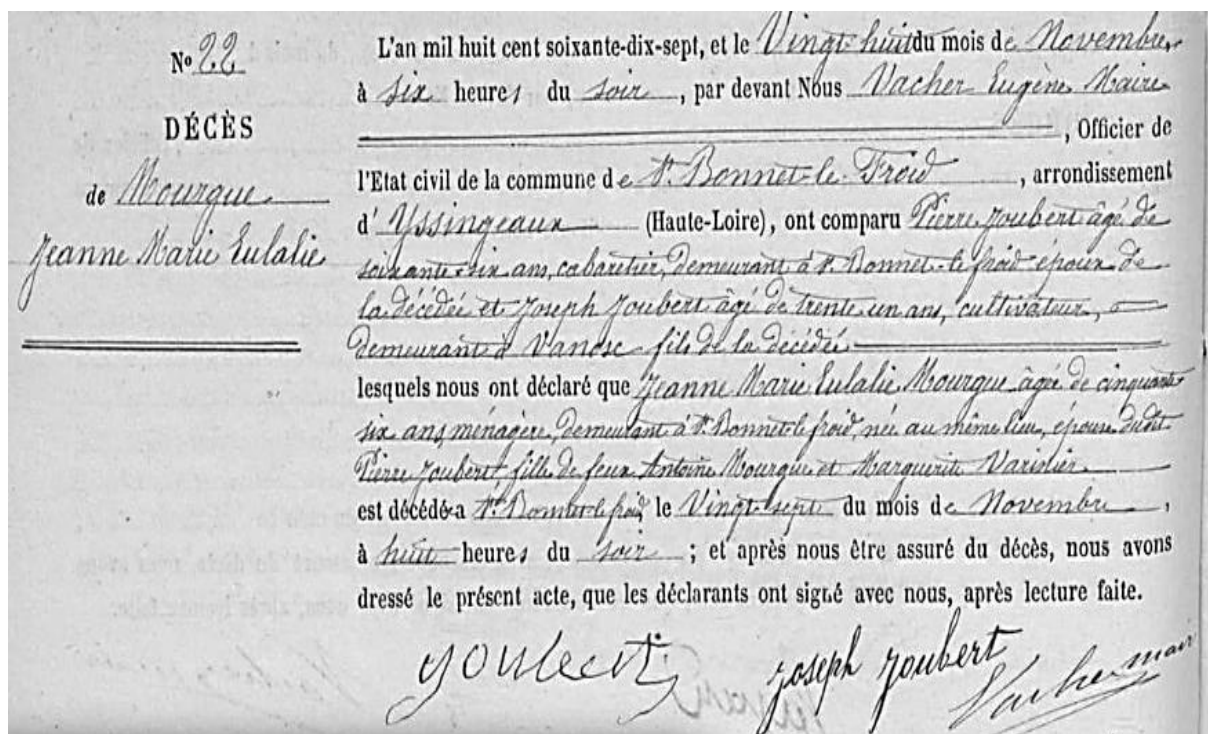 N° 22
DÉCÈS
de Mourgue
Jeanne Marie Eulalie
L'an mil huit cent soixante-dix-sept, et le Vingt-huit du mois de Novembre,
à six heures du soir, par devant Nous Vacher Eugène Maire
, Officier de
l'Etat civil de la commune de St Bonnet-le-Froid, arrondissement
d'Yssingeaux (Haute-Loire), ont comparu Pierre Joubert âgé de
soixante-six ans, cabaretier, demeurant à St Bonnet-le-froid époux de
la décédée et Joseph Joubert âgé de trente un ans, cultivateur,
demeurant à Vanosc fils de la décédée
lesquels nous ont déclaré que Jeanne Marie Eulalie Mourgue âgée de cinquante
six ans, ménagère, demeurant à St Bonnet-le froid, née au même lieu, épouse dudit
Pierre Joubert, fille de feux Antoine Mourgue et Marguerite Varinier
est décédée a St Bonnet le froid le Vingt-sept du mois de Novembre,
à huit heures du soir ; et après nous être assuré du décès, nous avons
dressé le présent acte, que les déclarants ont signé avec nous, après lecture faite.
Joubert
Joseph Joubert
Vacher maire